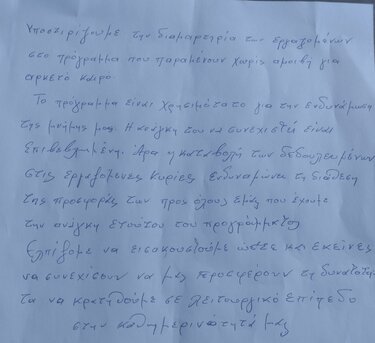 Υποστιρίζουμε την διαμαρτηρία των εργαζομένων
στο πρόγραμμα που παραμένουν χωρίς αμοιβή για
αρκετό καιρό.
Το πρόγραμμα είναι χρησιμότατο για την ενδυνάμωση
της μνήμης μας. Η ανάγκη του να συνεχιστεί είναι
επιβεβλημένη. Άρα η καταβολή των δεδουλευμένων
στις εργαζόμενες κυρίες ενδυναμώνει τη διάθεση
της προσφοράς των προς όλους εμάς που έχουμε
την ανάγκη ετούτου του προγράμματος
Ελπίζομε να εισακουστούμε ώστε και εκείνες
να συνεχίσουν να μας προσφέρουν τη δυνατότη
τα να κρατηθούμε σε λειτουργικό επίπεδο
στην καθημερινότητά μας